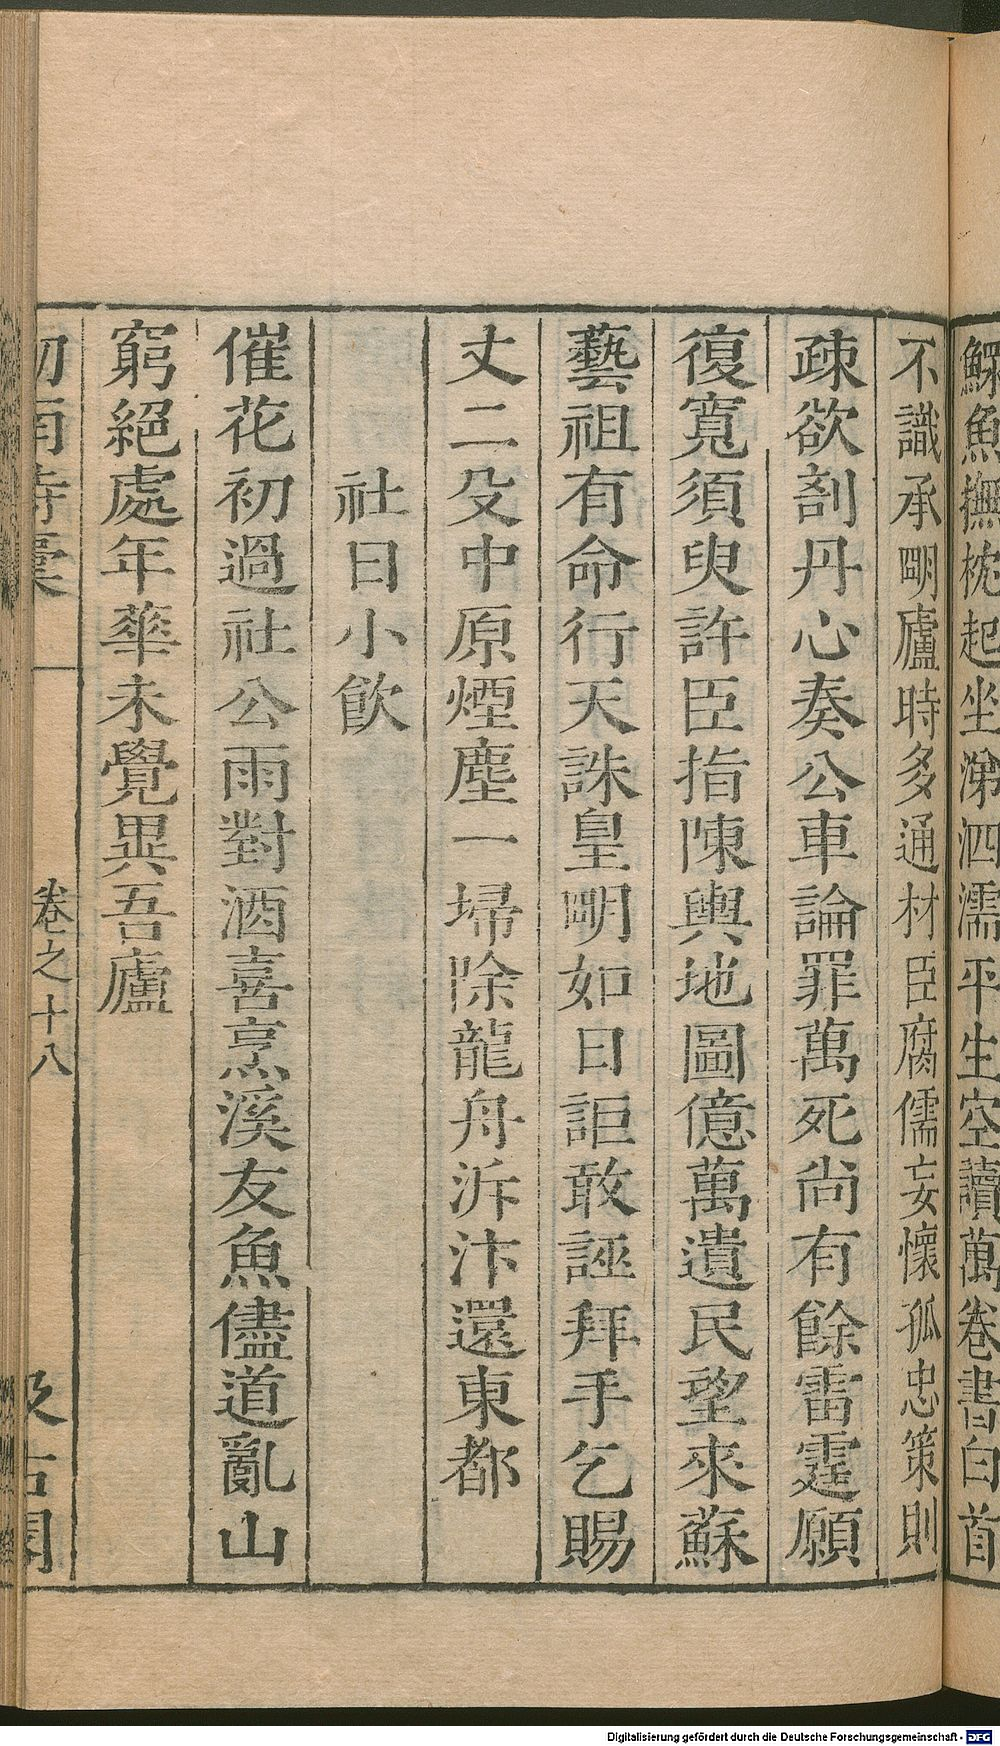 鰥魚撫枕起坐涕泗濡平生空讀萬卷書白首
不識承明廬時多通材臣腐儒妄懷孤忠策則
疎欲剖丹心奏公車論罪萬死尚有餘雷霆願
復寬須臾許臣指陳輿地圖億萬遺民望來蘇
藝祖有命行天誅皇明如日詎敢誣拜手乞賜
丈二殳中原煙塵一埽除龍舟泝汴還東都
社日小飲
催花初過社公雨對酒喜烹溪友魚儘道亂山
窮絕處年華未覺異吾廬
劒南詩稾
卷之十八
汲古閣
Digitalisierung gefördert durch die Deutsche Forschungsgemeinschaft - DFG